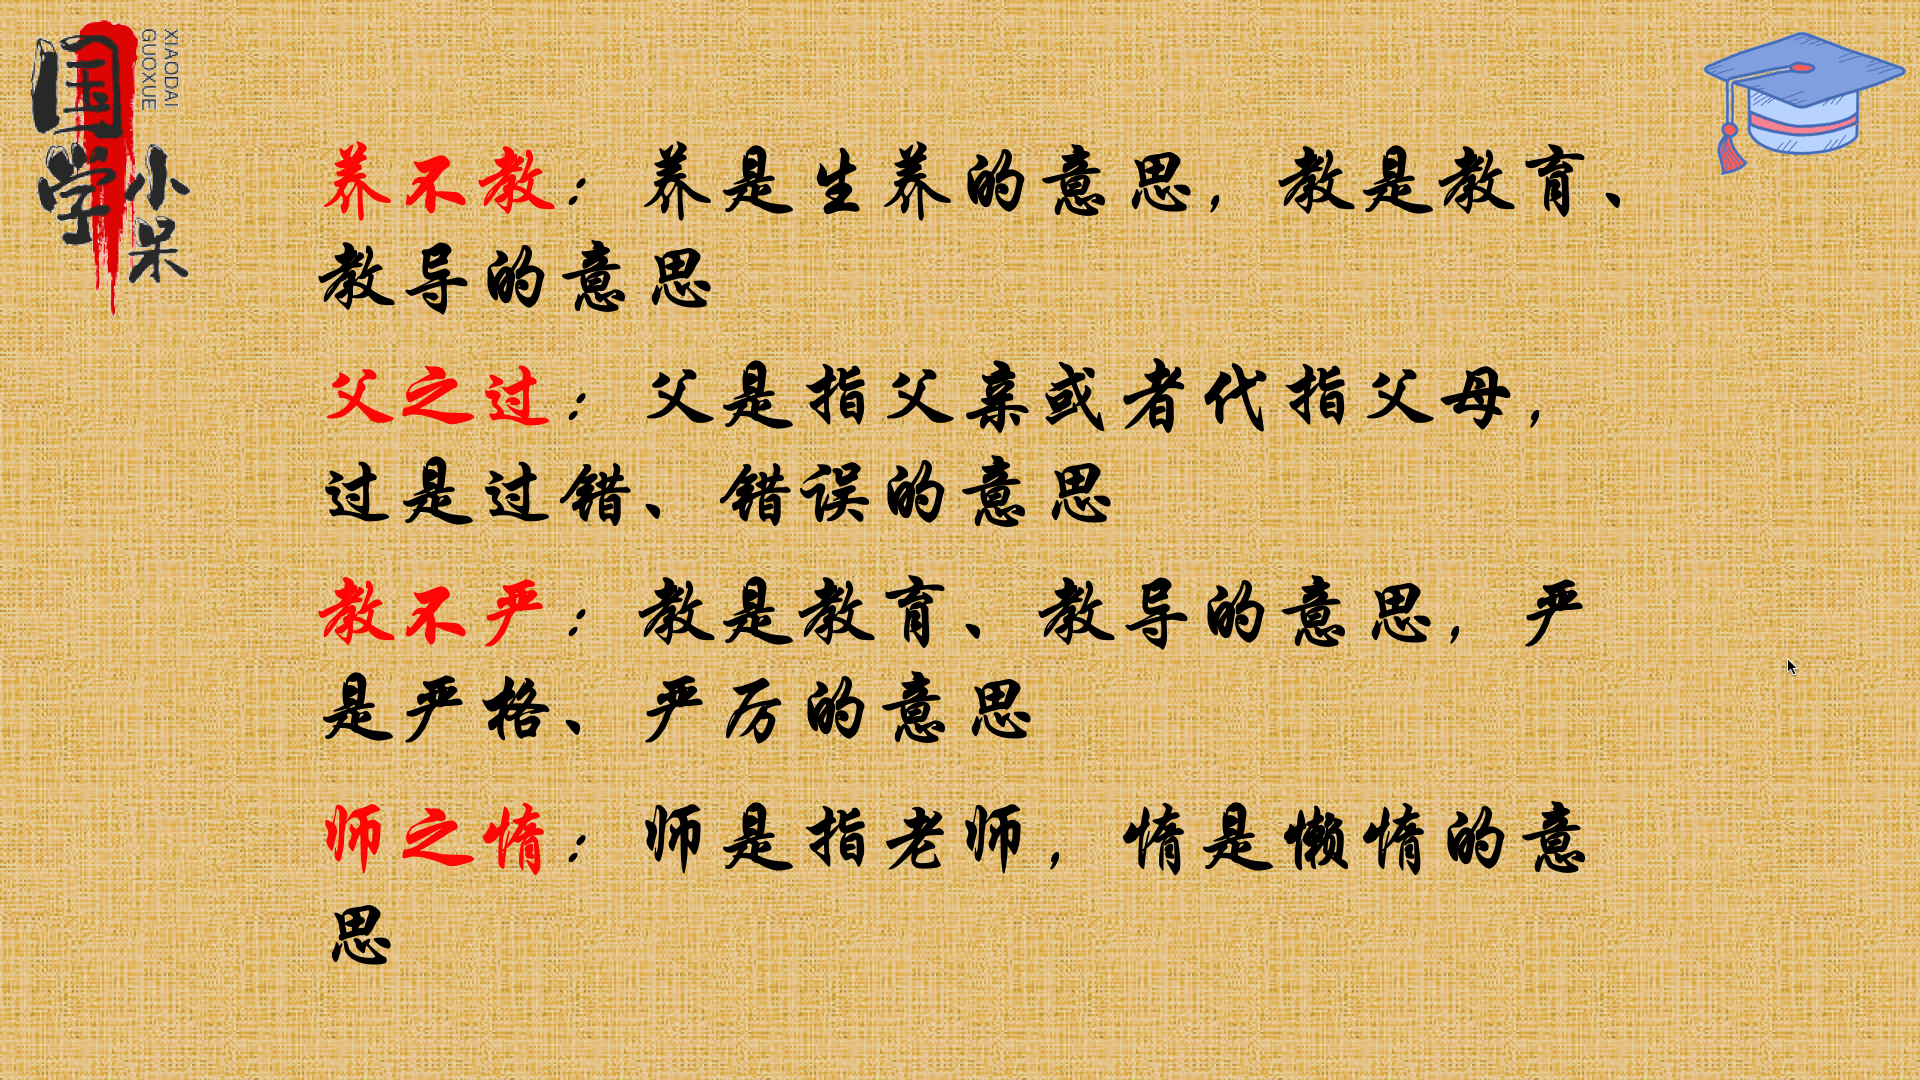 国学
小呆
XIAODAI
GUOXUE
养不教：养是生养的意思，教是教育、
教导的意思
父之过：父是指父亲或者代指父母，
过是过错、错误的意思
教不严：教是教育、教导的意思，严
是严格、严厉的意思
师之惰：师是指老师，惰是懒惰的意
思